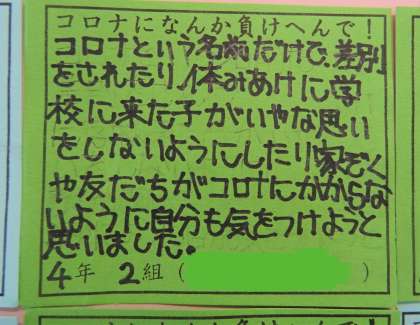 コロナになんか負けへんで！
コロナという名前だけで、差別
をされたり、休みあけに学
校に来た子がいやな思い
をしないようにしたり家ぞく
や友だちがコロナにかからな
いように自分も気をつけようと
思いました。
4年 2組（ ）